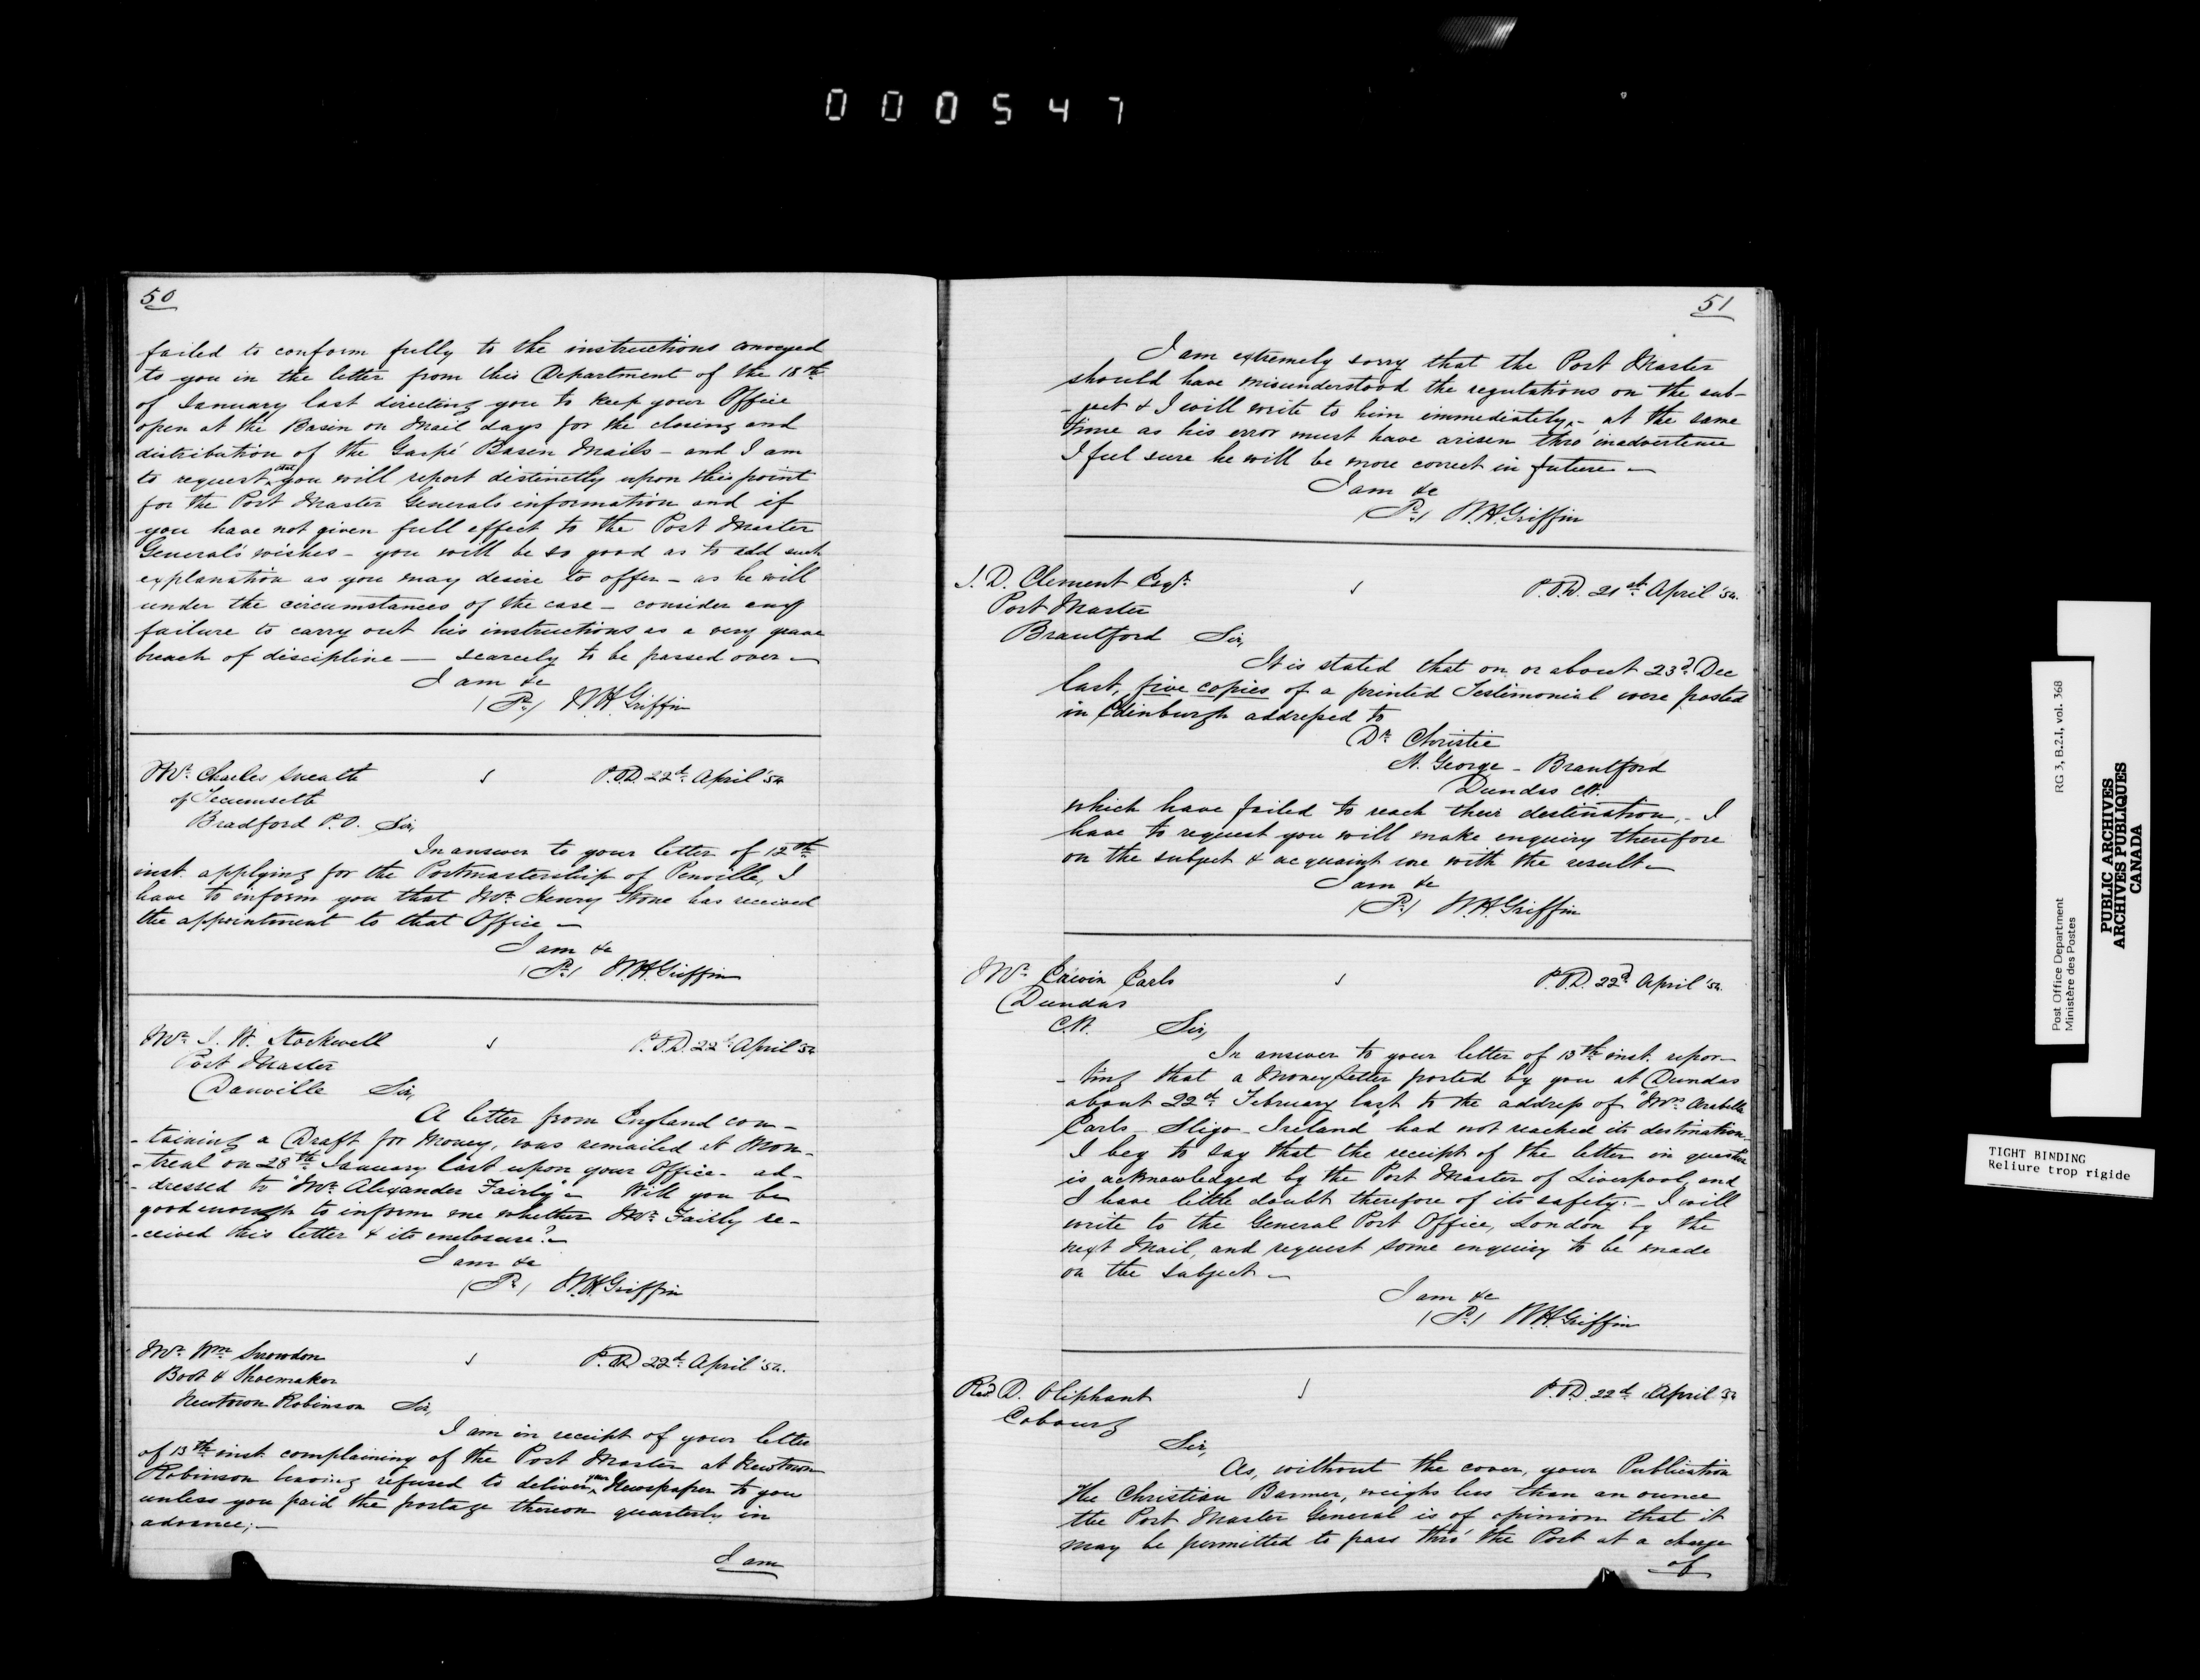 000547
50
failed to conform fully to the instructions conveyed
to you in the letter from this Department of the 18th
of January last directing you to keep your Office
open at the Basin on Mail days for the closing and
distribution of the Gaspé Basin Mails – and I am
to request that you will report distinctly upon this point
for the Post Master Generals information and if
you have not given full effect to the Post Master
General's wishes – you will be so good as to add such
explanation as you may desire to offer – as he will
under the circumstances of the case – consider any
failure to carry out his instructions as a very grave
breach of discipline — scarcely to be passed over –
I am &c
(Pr) W.H. Griffin
Mr. Charles Sneath
of Tecumseth
P.O.D. 22d April '54
Bradford P.O. Sir,
In answer to your letter of 12th
inst. applying for the Postmastership of Penville, I
have to inform you that Mr. Henry Stone has received
the appointment to that Office –
I am &c
(Pr) W.H. Griffin
Mr. S. W. Stockwell
P.O.D. 22d April '54
Post Master
Danville Sir,
A letter from England con-
-taining a Draft for Money, was remailed at Mon-
-treal on 28th January last upon your Office – ad-
-dressed to "Mr. Alexander Fairly" – Will you be
good enough to inform me whether Mr. Fairly re-
-ceived this letter & its enclosure? –
I am &c
(Pr) W.H. Griffin
Mr. Wm. Snowdon
P.O.D. 22d April '54.
Boot & Shoemaker
Newtown Robinson Sir,
I am in receipt of your letter
of 13th inst. complaining of the Post Master at Newtown
Robinson having refused to deliver your Newspaper to you
unless you paid the postage thereon quarterly in
advance; –
I am
51
I am extremely sorry that the Post Master
should have misunderstood the regulations on the sub-
-ject & I will write to him immediately, – at the same
time as his error must have arisen thro' inadvertence
I feel sure he will be more correct in future –
I am &c
(Pr) W.H. Griffin
J. D. Clement Esqr.
P.O.D. 21st April '54.
Post Master
Brantford Sir,
It is stated that on or about 23d Dec
last, five copies of a printed Testimonial were posted
in Edinburgh addressed to
Dr. Christie
St. George – Brantford
Dundas C.W.
which have failed to reach their destination, – I
have to request you will make enquiry therefore
on the subject & acquaint me with the result –
I am &c
(Pr) W.H. Griffin
Mr. Edwin Earls
P.O.D. 22d April '54.
Dundas
C.W. Sir,
In answer to your letter of 13th inst. repor-
-ting that a Money Letter posted by you at Dundas
about 22d February last to the address of "Mrs. Arabella
Earls Sligo Ireland had not reached its destination.
I beg to say that the receipt of the letter in question
is acknowledged by the Post Master of Liverpool, and
I have little doubt therefore of its safety: – I will
write to the General Post Office, London by the
next Mail, and request some enquiry to be made
on the subject –
I am &c
(Pr) W.H. Griffin
Revd D. Oliphant
P.O.D. 22d April '54
Cobourg
Sir,
As, without the cover, your Publication
The Christian Banner, weighs less than an ounce
the Post Master General is of opinion that it
may be permitted to pass thro' the Post at a charge
of
Post Office Department RG 3, B.2.I, vol. 368
Ministère des Postes
PUBLIC ARCHIVES
ARCHIVES PUBLIQUES
CANADA
TIGHT BINDING
Reliure trop rigide